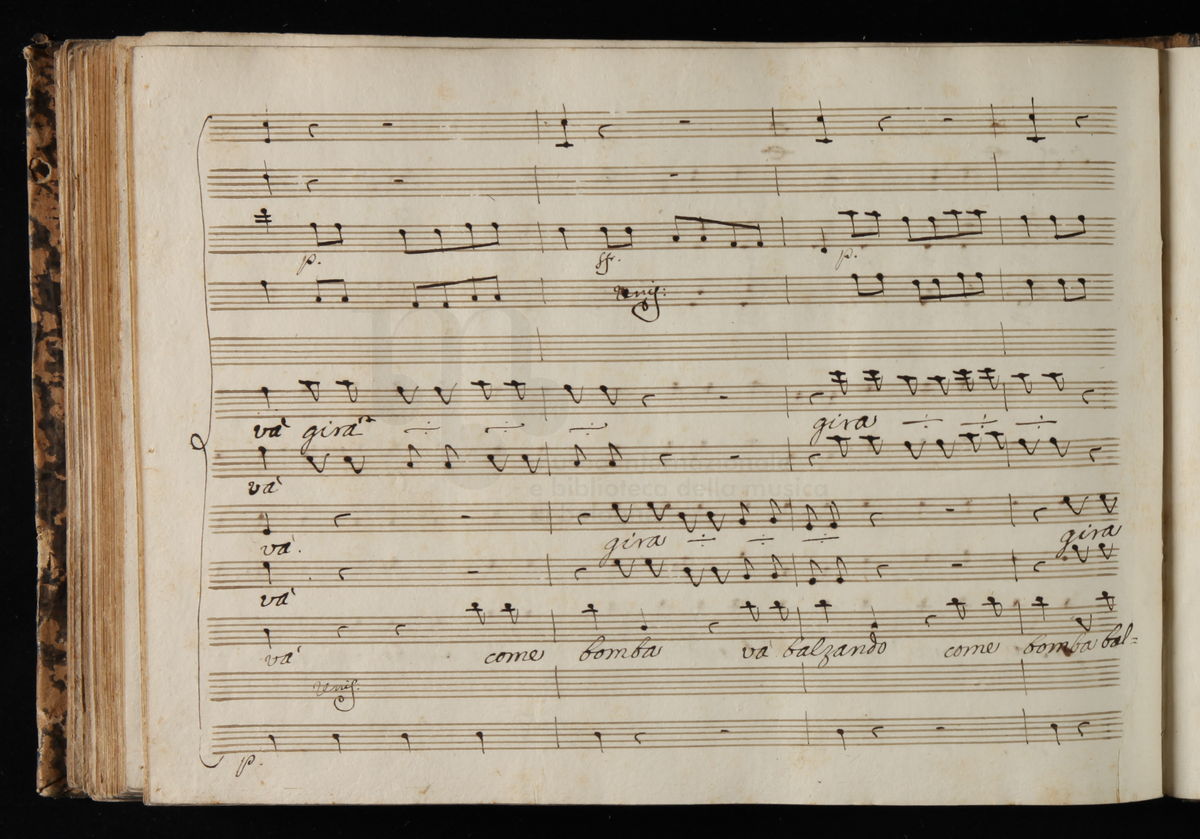 p. sf. p.
Unis:
và gira gira
và
và. gira gira
và
và come bomba va balzando come bomba bal=
Unis.
p.
e biblioteca della musica